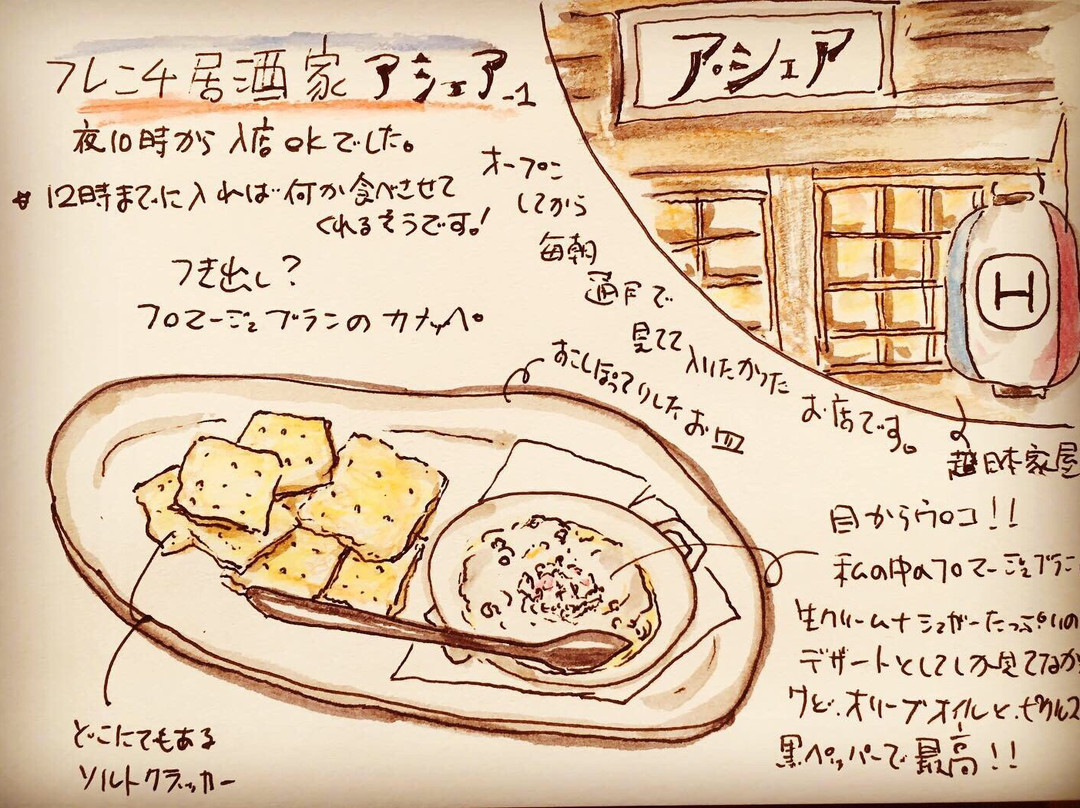 フレンチ居酒家 アシェア-1
夜10時から入店okでした。
12時までに入れば何か食べさせて
くれるそうです!
つき出し?
フロマージュブランのカナッペ
オープン
してから
毎朝
通勤で
見てて
入りたかった
お店です。
アシェア
H
超日本家屋
すこしぽってりしたお皿
目からウロコ!!
私の中のフロマージュブラン
生クリーム+シュガーたっぷりの
デザートとしてしか見てなか
けど、オリーブオイルと、ピクルス
黒ペッパーで最高!!
どこにでもある
ソルトクラッカー